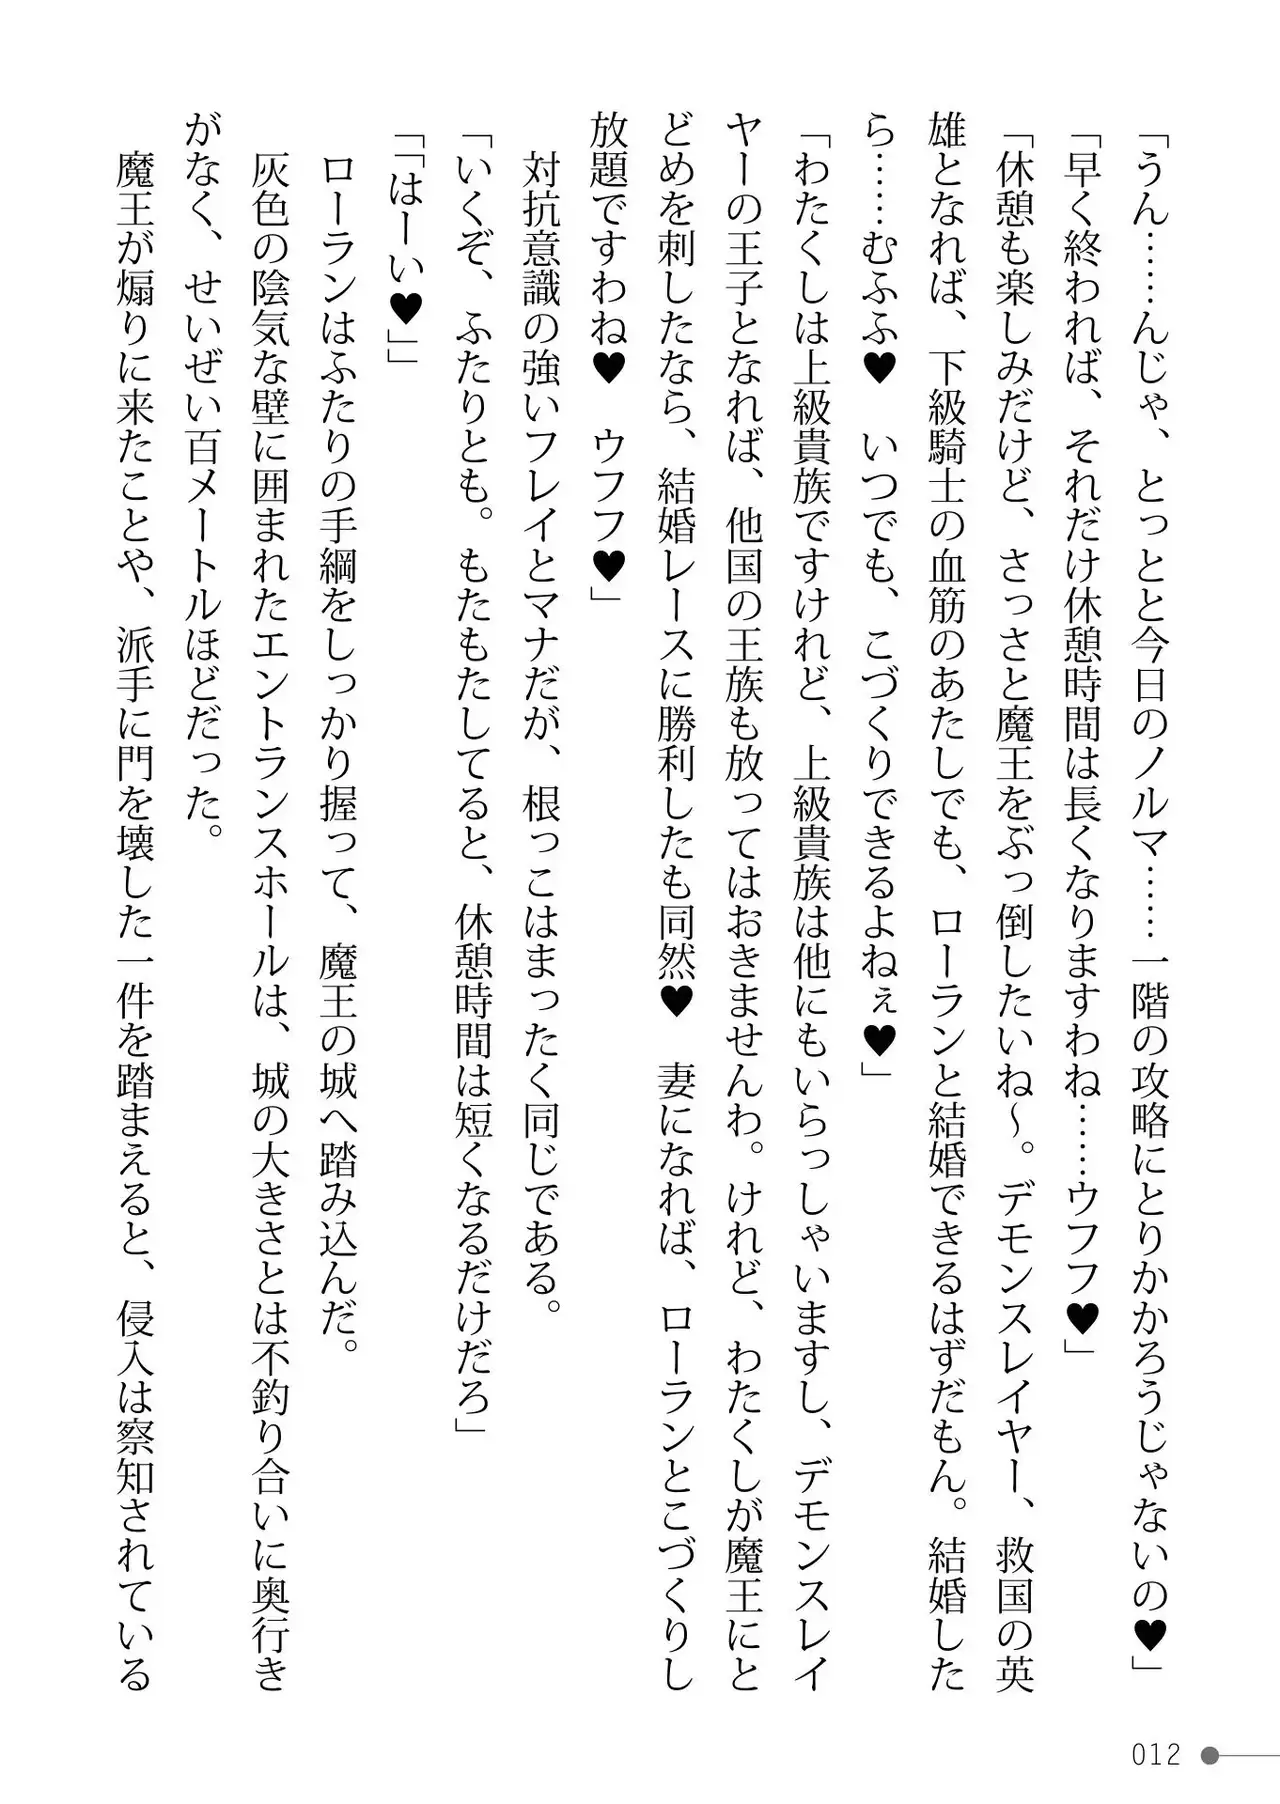 「うん……んじゃ、とっとと今日のノルマ……一階の攻略にとりかかろうじゃないの♥」
「早く終われば、それだけ休憩時間は長くなりますわね……ウフフ♥」
「休憩も楽しみだけど、さっさと魔王をぶっ倒したいね～。デモンスレイヤー、救国の英
雄となれば、下級騎士の血筋のあたしでも、ローランと結婚できるはずだもん。結婚した
ら……むふふ♥　いつでも、こづくりできるよねぇ♥」
「わたくしは上級貴族ですけれど、上級貴族は他にもいらっしゃいますし、デモンスレイ
ヤーの王子となれば、他国の王族も放ってはおきませんわ。けれど、わたくしが魔王にと
どめを刺したなら、結婚レースに勝利したも同然♥　妻になれば、ローランとこづくりし
放題ですわね♥　ウフフ♥」
　対抗意識の強いフレイとマナだが、根っこはまったく同じである。
「いくぞ、ふたりとも。もたもたしてると、休憩時間は短くなるだけだろ」
「「はーい♥」」
　ローランはふたりの手綱をしっかり握って、魔王の城へ踏み込んだ。
　灰色の陰気な壁に囲まれたエントランスホールは、城の大きさとは不釣り合いに奥行き
がなく、せいぜい百メートルほどだった。
　魔王が煽りに来たことや、派手に門を壊した一件を踏まえると、侵入は察知されている
012